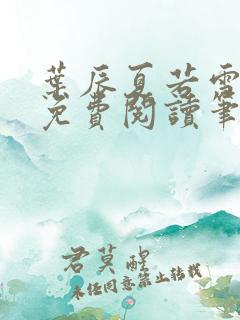 葉辰夏若雪
免費閱讀筆
君莫醒
未经同意禁止转载